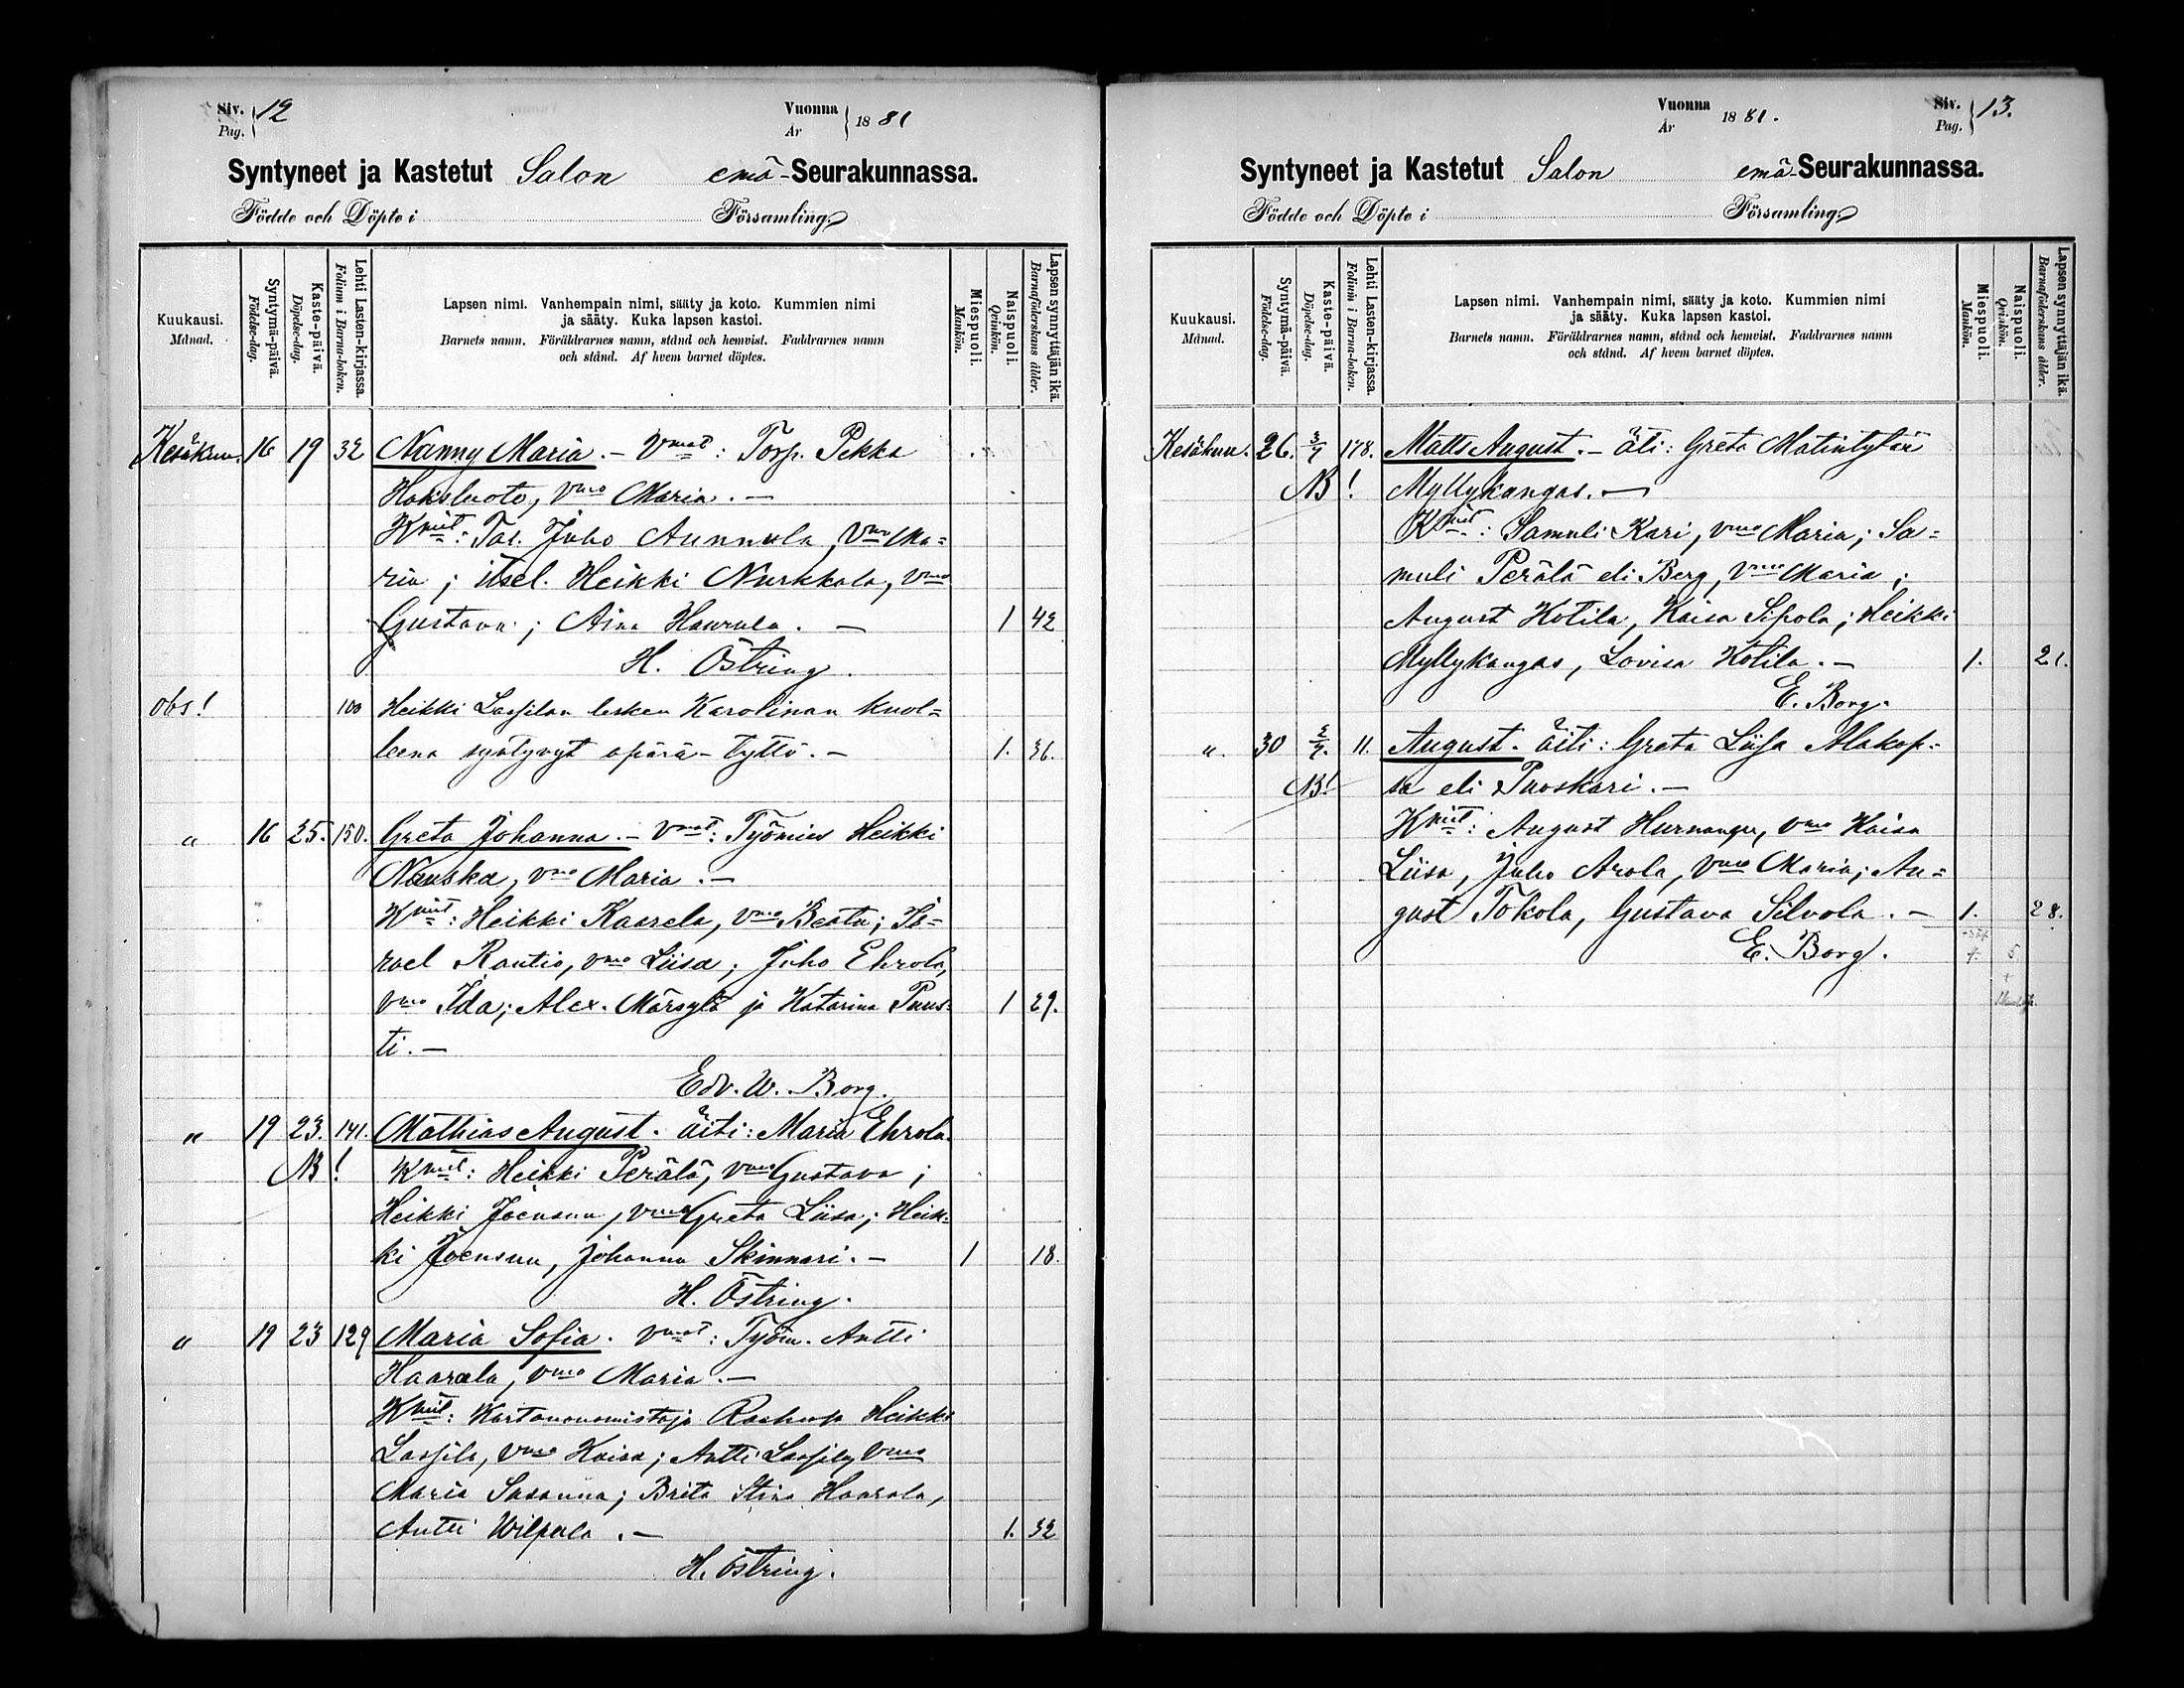 Siv. Pag. } 12
Vuonna År } 1881
Syntyneet ja Kastetut Salon emä-Seurakunnassa.
Födde och Döpte i Församling
Kuukausi. Månad.
Syntymä-päivä. Födelse-dag.
Kaste-päivä. Döpelse-dag.
Lehti Lasten-kirjassa. Folium i Barna-boken.
Lapsen nimi. Vanhempain nimi, sääty ja koto. Kummien nimi
ja sääty. Kuka lapsen kastoi.
Barnets namn. Föräldrarnes namn, stånd och hemvist. Faddrarnes namn
och stånd. Af hvem barnet döptes.
Miespuoli. Mankön.
Naispuoli. Qvinkön.
Lapsen synnyttäjän ikä. Barnaföderskans ålder.
Kesäkuu. 16 19 32 Nanny Maria. - Vmat: Torp. Pekka
Haksluoto, vmo Maria. -
Kmit: Tal. Juho Aunnula, Vmo Ma=
ria; itsel. Heikki Nurkkala, vmo
Gustava; Aina Haurula. - 1 42
H. Östring.
obs! 100 Heikki Lassilan lesken Karolinan kuol=
leena syntynyt äpärä-tyttö. - 1. 36.
" 16 25. 150. Greta Johanna. - vmat: Työmies Heikki
Nauska, vmo Maria. -
Kmit: Heikki Kaarela, vmo Beata; Is=
rael Rautio, vmo Liisa; Juho Ehrola,
vmo Ida; Alex. Märsylä ja Katarina Puus= 1 29.
ti. -
Edv. W. Borg.
" 19 23. 141. Mathias August. äiti: Maria Ehrola.
NB! Kmit: Heikki Perälä, vmo Gustava;
Heikki Joensuu, vmo Greta Liisa; Heik=
ki Joensuu, Johanna Skinnari. - 1 18.
H. Östring.
" 19 23 129 Maria Sofia. vmat: Työm. Antti
Haarala, vmo Maria. -
Kmit: Kartanonomistaja Heikki
Lassila, vmo Kaisa; Antti Lassila, vmo
Maria Susanna; Brita Stina Haarala,
Antti Wilpola. - 1. 32
H. Östring.
Vuonna År 1881.
Siv. Pag. } 13.
Syntyneet ja Kastetut Salon emä-Seurakunnassa.
Födde och Döpte i Församling
Kuukausi. Månad.
Syntymä-päivä. Födelse-dag.
Kaste-päivä. Döpelse-dag.
Lehti Lasten-kirjassa. Folium i Barna-boken.
Lapsen nimi. Vanhempain nimi, sääty ja koto. Kummien nimi
ja sääty. Kuka lapsen kastoi.
Barnets namn. Föräldrarnes namn, stånd och hemvist. Faddrarnes namn
och stånd. Af hvem barnet döptes.
Miespuoli. Mankön.
Naispuoli. Qvinkön.
Lapsen synnyttäjän ikä. Barnaföderskans ålder.
Kesäkuu. 26. 3/7 178. Matts August. - äti: Greta Matintytär
NB! Myllykangas. -
Kmit: Samuli Kari, vmo Maria; Sa=
muli Perälä eli Berg, vmo Maria;
August Kotila, Kaisa Sipola; Heikki
Myllykangas, Lovisa Kotila. - 1. 21.
E. Borg.
". 30 2/7. 11. August. äiti: Greta Liisa Alakop=
NB! sa eli Puoskari. -
Kmit: August Hurnanpu, vmo Kaisa
Liisa, Juho Arola, vmo Maria; Au=
gust Tokola, Gustava Silvola. - 1. 28.
E. Borg. 5